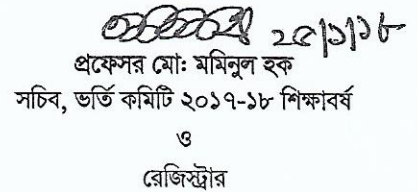 ২৫/১/১৮
প্রফেসর মো: মমিনুল হক
সচিব, ভর্তি কমিটি ২০১৭-১৮ শিক্ষাবর্ষ
ও
রেজিস্ট্রার